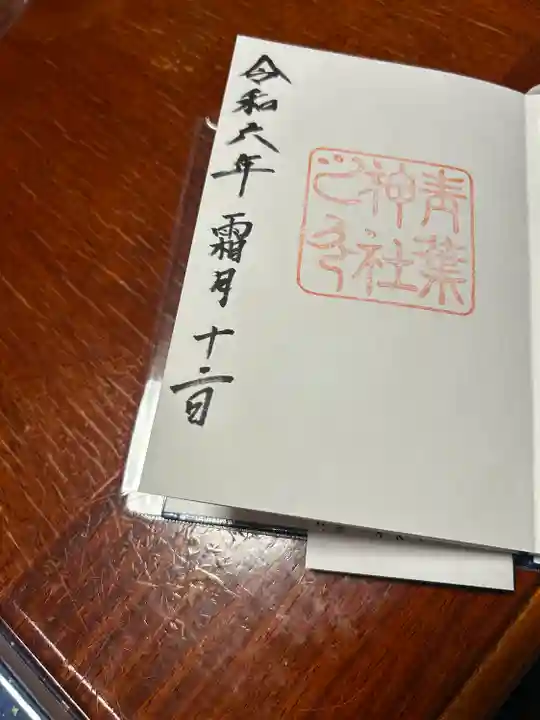 青葉
神社
之印
令和六年 霜月 十二日